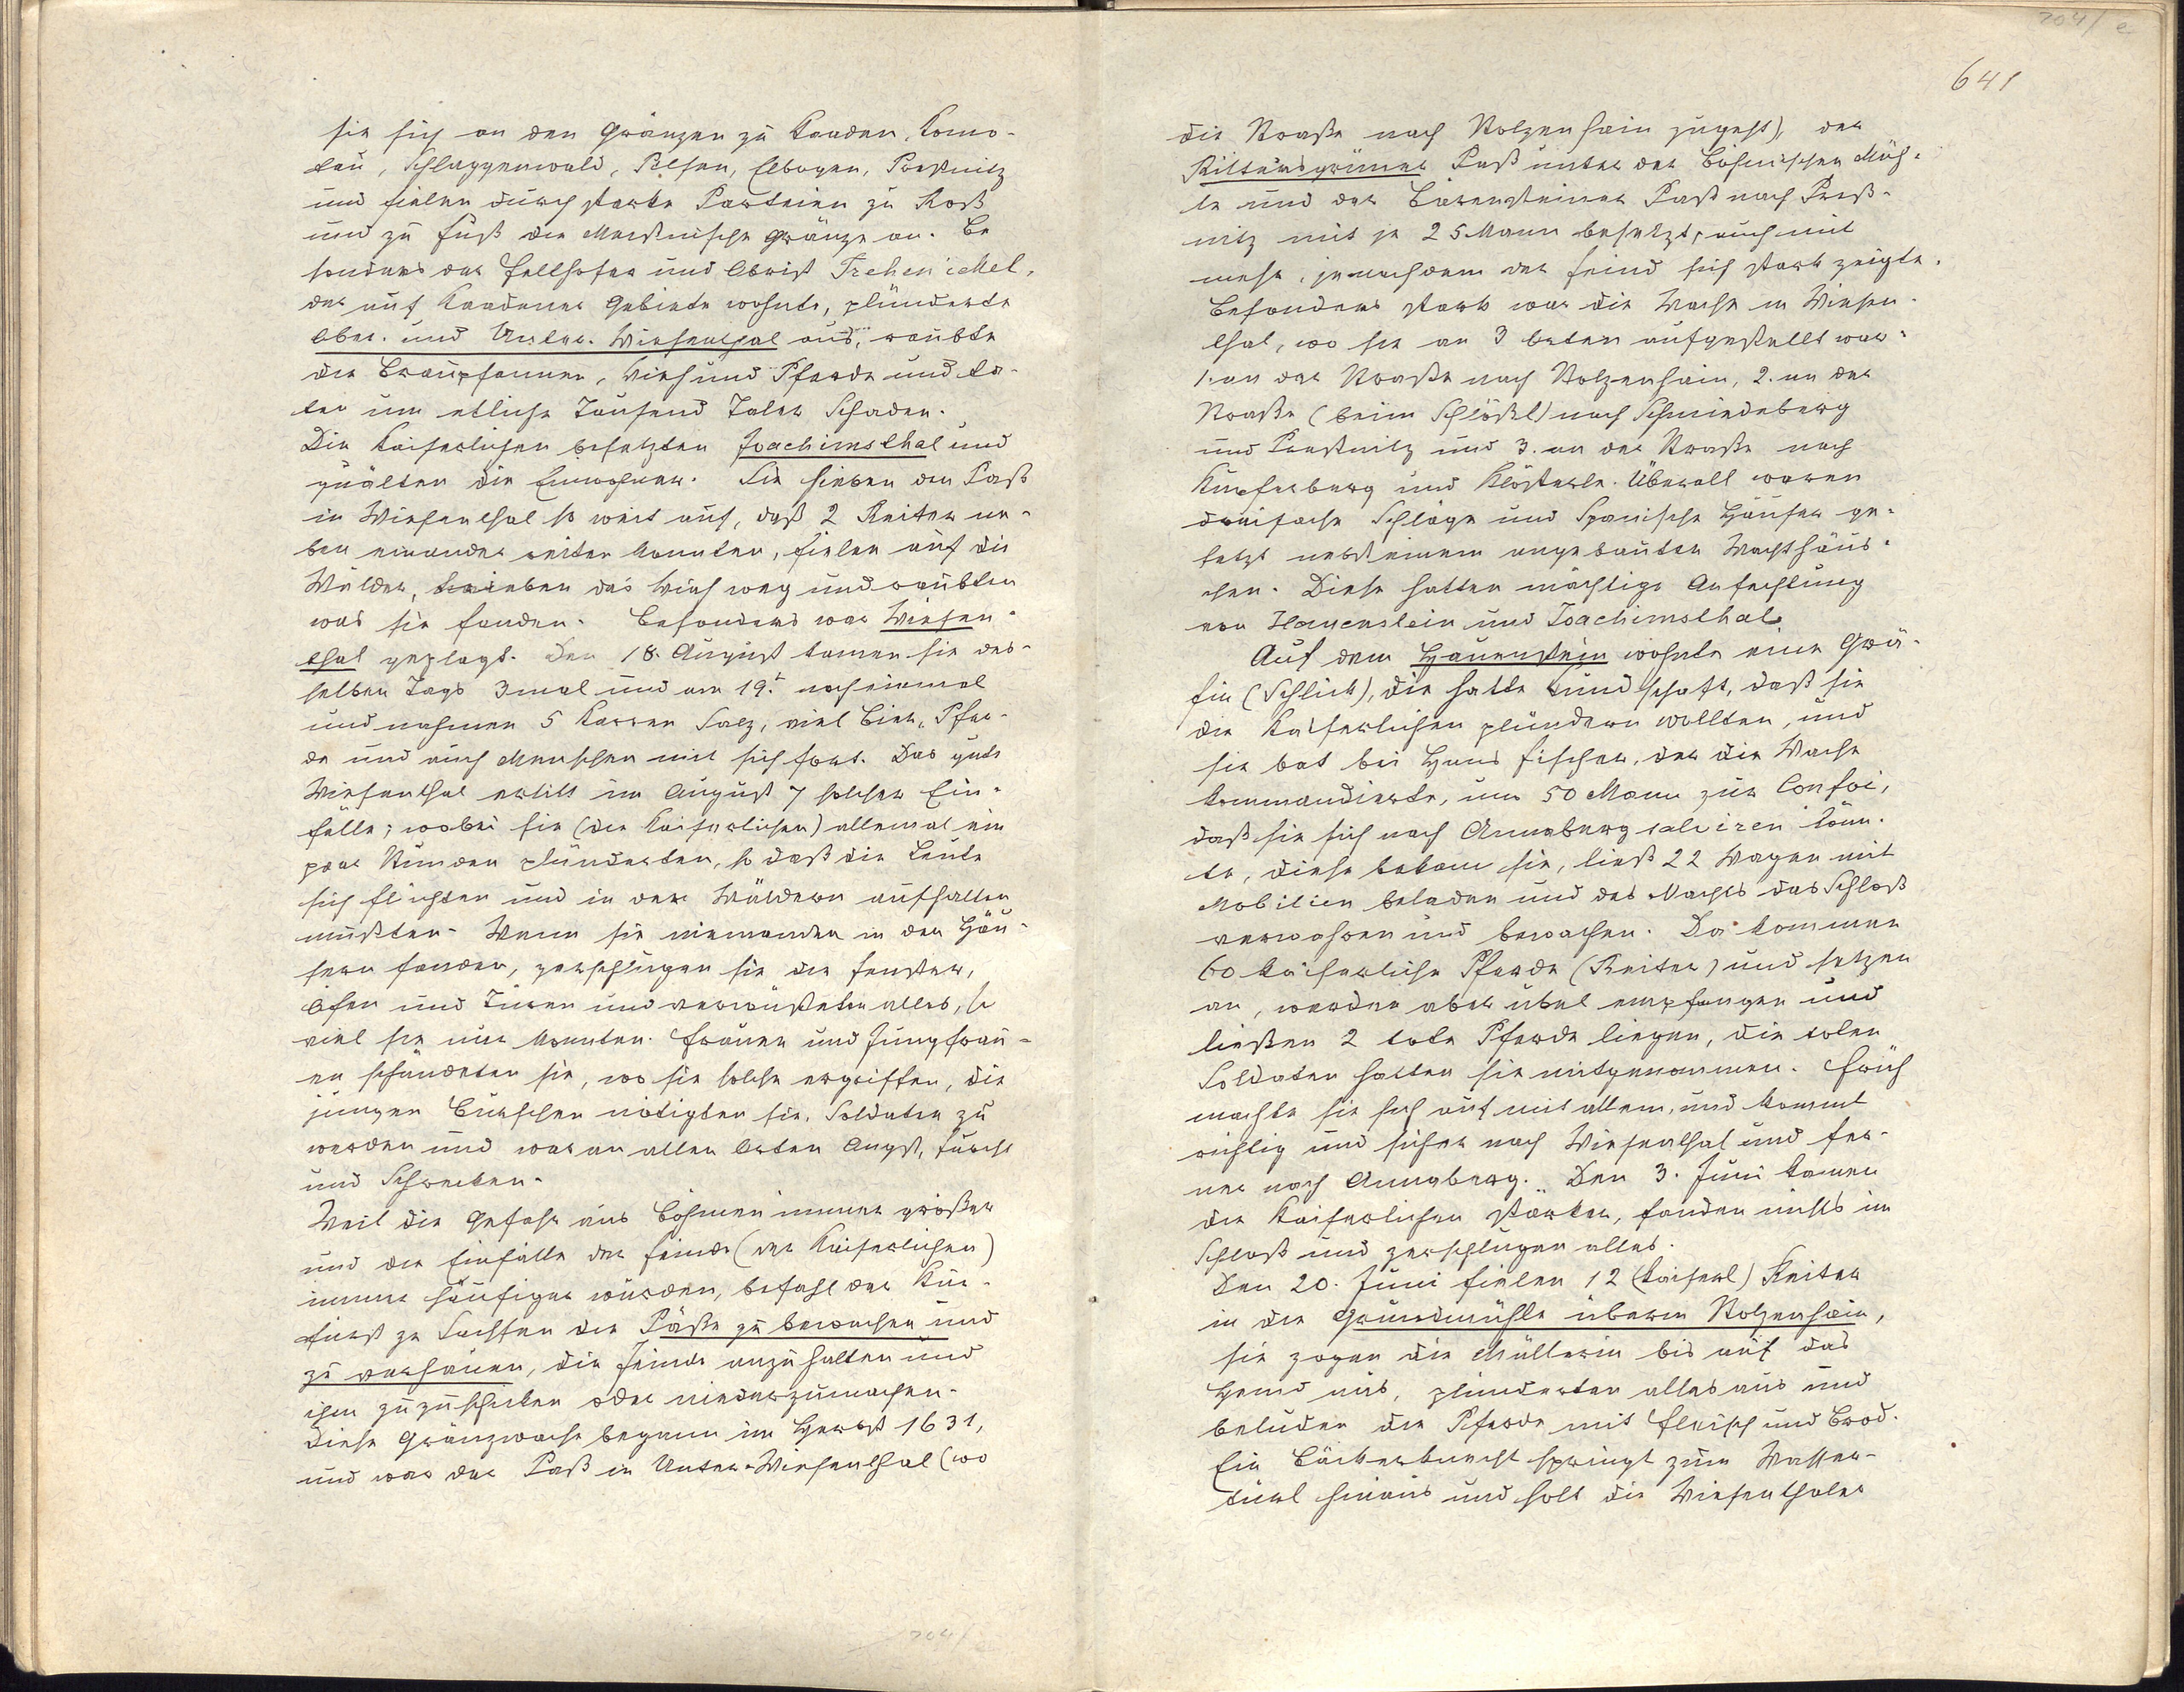 sie sich an den Gränzen zu Kaaden, Komo-
tau, Schlaggenwald, Pilsen, Elbogen, Preßnitz
und fielen durch starke Parteien zu Roß
und zu Fuß die Meißnische Gränze an. Be
sonders der Hellhofer und Obrist
der auf Kaadener Gebiete wohnte, plünderte
Ober- und Unter-Wiesenthal aus, raubte
die Braupfannen, Vieh und Pferde und ta-
ten um etliche Tausend Taler Schaden.
Die Kaiserlichen besetzten Joachimsthal und
quälten die Einwohner. Sie hieben den Paß
in Wiesenthal so weit auf, daß 2 Reiter ne-
ben einander reiten konnten, fielen auf die
Wälder, trieben das Vieh weg und raubten
was sie fanden. Besonders war Wiesen-
thal geplagt. Den 18. August kamen sie des-
selben Tags 3mal und am 19.t noch einmal
und nahmen 5 Karren Salz, viel Bier, Pfer-
de und auch Menschen mit sich fort. Das gute
Wiesenthal erlitt im August 7 solcher Ein-
fälle; wobei sie (die Kaiserlichen) allemal ein
paar Stunden plünderten, so daß die Leute
sich flüchten und in den Wäldern aufhalten
mußten. Wenn sie niemanden in den Häu-
sern fanden, zerschlugen sie die Fenster,
Öfen und Türen und verwüsteten alles, so
viel sie nur konnten. Frauen und Jungfrau-
en schändeten sie, wo sie solche ergriffen, die
jungen Burschen nötigten sie, Soldaten zu
werden und war an allen Orten Angst, Furcht
und Schrecken.
Weil die Gefahr aus Böhmen immer größer
und die Einfälle der Feinde (der Kaiserlichen)
immer häufiger wurden, befahl der Kur-
fürst zu Sachsen die Päße zu bewachen und
zu verhauen, die Feinde anzuhalten und
ihm zuzuschicken oder niederzumachen.
Diese Gränzwache begann im Herbst 1631,
und war der Paß in Unter-Wiesenthal (wo
204/e
641
die Straße nach Stolzenhain zugeht), der
Rittersgrüner Paß unter der böhmischen Müh-
le und der Bärensteiner Paß nach Preß-
nitz mit je 25 Mann besetzt, auch mit
mehr, jenachdem der Feind sich stark zeigte.
Besonders stark war die Wache in Wiesen-
thal, wo sie an 3 Orten aufgestellt war:
1. an der Straße nach Stolzenhain, 2. an der
Straße (beim Schlößl) nach Schmiedeberg
und Preßnitz und 3. an der Straße nach
Kupferberg und Klösterle. Überall waren
dreifache Schläge und Spanische Häuser ge-
setzt nebst einem angebauten Wachthäus-
chen. Diese hatten mächtige Anfechtung
von Hauenstein und Joachimsthal.
Auf dem Hauenstein wohnte eine Grä-
fin (Schlick), die hatte Kundschaft, daß sie
die Kaiserlichen plündern wollten, und
sie bat bei Hans Fischer, der die Wache
kommandierte, um 50 Mann zur Confoi,
daß sie sich nach Annaberg salviren könn-
te, diese bekam sie, ließ 22 Wagen mit
Mobilien beladen und des Nachts das Schloß
verwahren und bewachen. Da kommen
60 kaiserliche Pferde (Reiter) und setzen
an, werden aber übel empfangen und
ließen 2 tote Pferde liegen, die toten
Soldaten hatten sie mitgenommen. Früh
machte sie sich auf mit allem, und kommt
richtig und sicher nach Wiesenthal und fer-
ner nach Annaberg. Den 3. Juni kamen
die Kaiserlichen stärker, fanden nichts im
Schloß und zerschlugen alles.
Den 20. Juni fielen 12 (kaiserl) Reiter
in die Grundmühle überm Stolzenhain,
sie zogen die Müllerin bis auf das
Hemd aus, plünderten alles aus und
beluden die Pferde mit Fleisch und Brod.
Ein Bäckerknecht springt zum Wasser-
türl hinaus und holt die Wiesenthaler